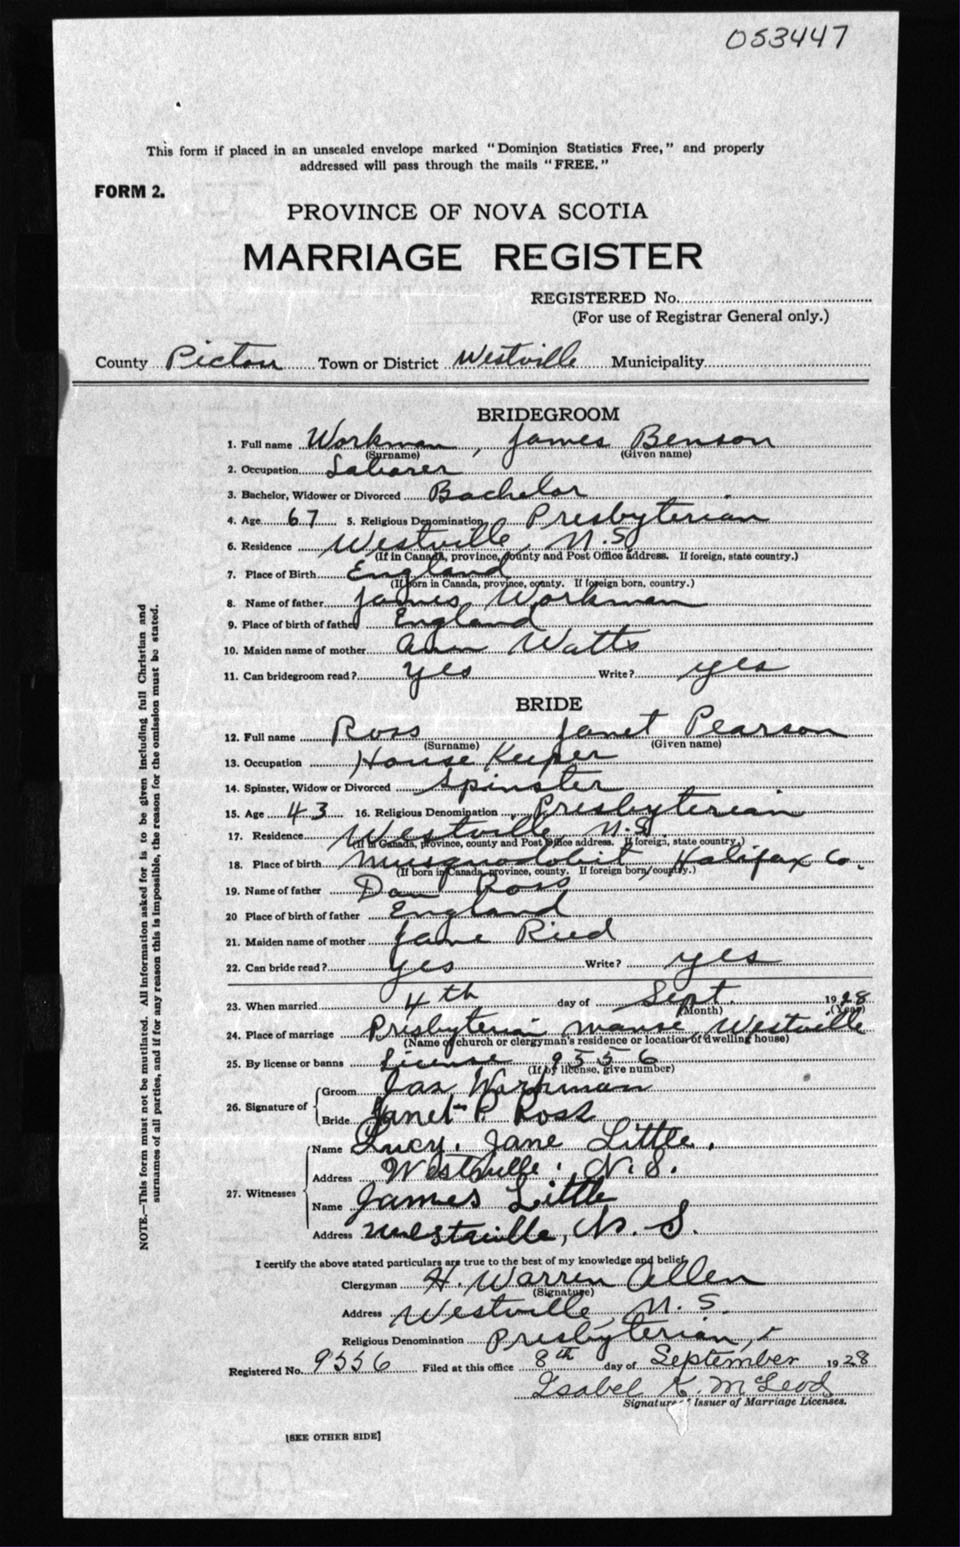 053447
This form if placed in an unsealed envelope marked "Dominion Statistics Free," and properly
addressed will pass through the mails "FREE."
FORM 2.
PROVINCE OF NOVA SCOTIA
MARRIAGE REGISTER
REGISTERED No.
(For use of Registrar General only.)
County Pictou Town or District Westville Municipality
BRIDEGROOM
1. Full name Workman, James Benson
(Surname) (Given name)
2. Occupation Laborer
3. Bachelor, Widower or Divorced Bachelor
4. Age 67 5. Religious Denomination Presbyterian
6. Residence Westville, N.S.
(If in Canada, province, county and Post Office address. If foreign, state country.)
7. Place of Birth England
(If born in Canada, province, county. If foreign born, country.)
8. Name of father James Workman
9. Place of birth of father England
10. Maiden name of mother Ann Watts
11. Can bridegroom read? yes Write? yes
BRIDE
12. Full name Ross Janet Pearson
(Surname) (Given name)
13. Occupation House Keeper
14. Spinster, Widow or Divorced Spinster
15. Age 43 16. Religious Denomination Presbyterian
17. Residence Westville, N.S.
(If in Canada, province, county and Post Office address. If foreign, state country.)
18. Place of birth Musquodobit, Halifax Co.
(If born in Canada, province, county. If foreign born, country.)
19. Name of father Dan Ross
20 Place of birth of father England
21. Maiden name of mother Jane Ried
22. Can bride read? yes Write? yes
23. When married 4th day of Sept. 1928
(Month) (Year)
24. Place of marriage Presbyterian Manse, Westville
(Name of church or clergyman's residence or location of dwelling house)
25. By license or banns License 9556
(If by license, give number)
26. Signature of Groom Jas Workman
Bride Janet P. Ross
27. Witnesses Name Lucy. Jane Little.
Address Westville. N.S.
Name James Little
Address Westville, N. S.
I certify the above stated particulars are true to the best of my knowledge and belief,
Clergyman H. Warren Allen
(Signature)
Address Westville, N.S.
Religious Denomination Presbyterian,
Registered No. 9556 Filed at this office 8th day of September 1928
Isabel K. McLeod
Signature of Issuer of Marriage Licenses.
[SEE OTHER SIDE]
NOTE.—This form must not be mutilated. All information asked for is to be given including full Christian and
surnames of all parties, and if for any reason this is impossible, the reason for the omission must be stated.